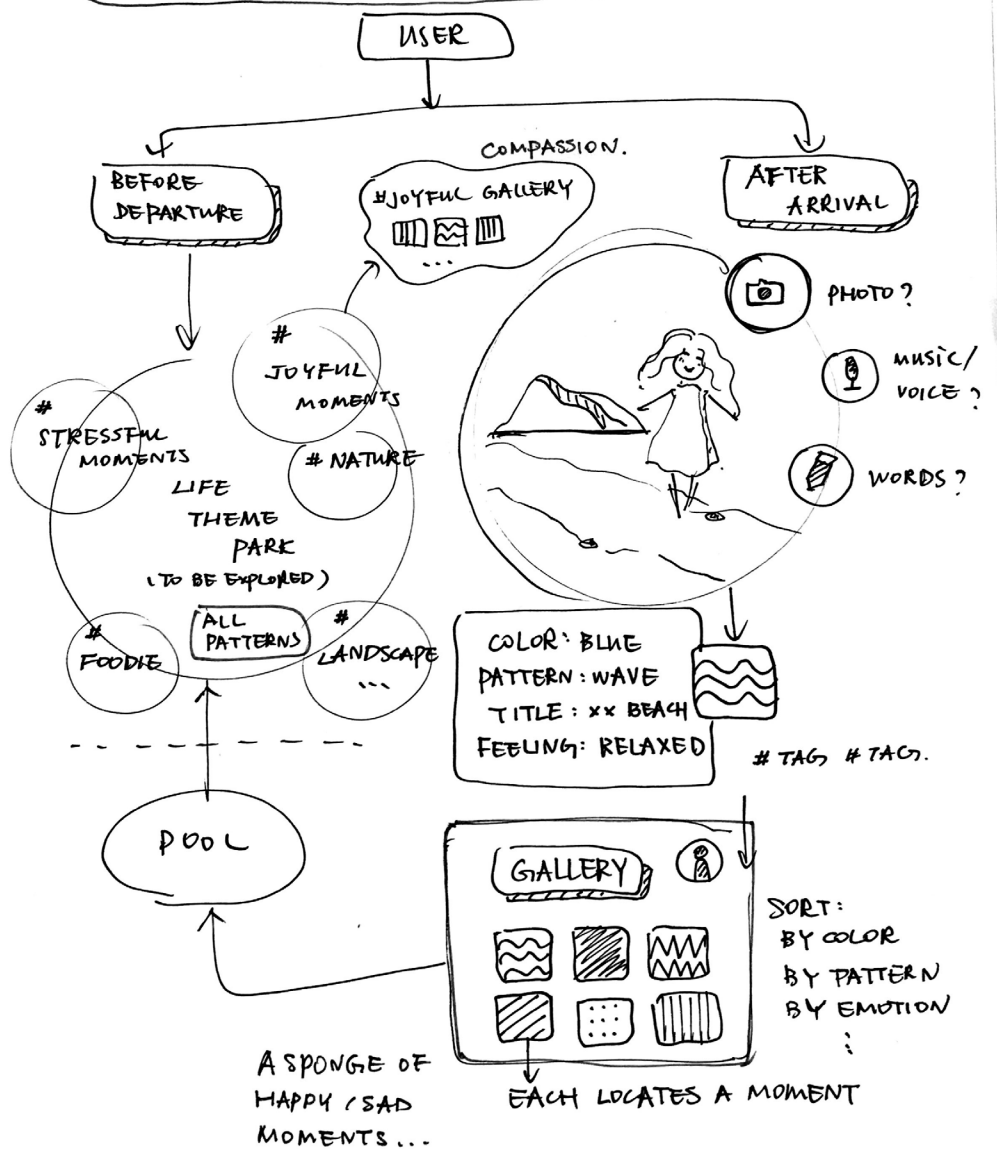 USER
COMPASSION.
BEFORE
DEPARTURE
#JOYFUL GALLERY
...
AFTER
ARRIVAL
PHOTO?
MUSIC/
VOICE?
WORDS?
#
JOYFUL
MOMENTS
#
STRESSFUL
MOMENTS
# NATURE
LIFE
THEME
PARK
(TO BE EXPLORED)
ALL
PATTERNS
#
FOODIE
#
LANDSCAPE
...
COLOR: BLUE
PATTERN: WAVE
TITLE: xx BEACH
FEELING: RELAXED
# TAG # TAG.
POOL
GALLERY
SORT:
BY COLOR
BY PATTERN
BY EMOTION
⋮
EACH LOCATES A MOMENT
A SPONGE OF
HAPPY / SAD
MOMENTS...